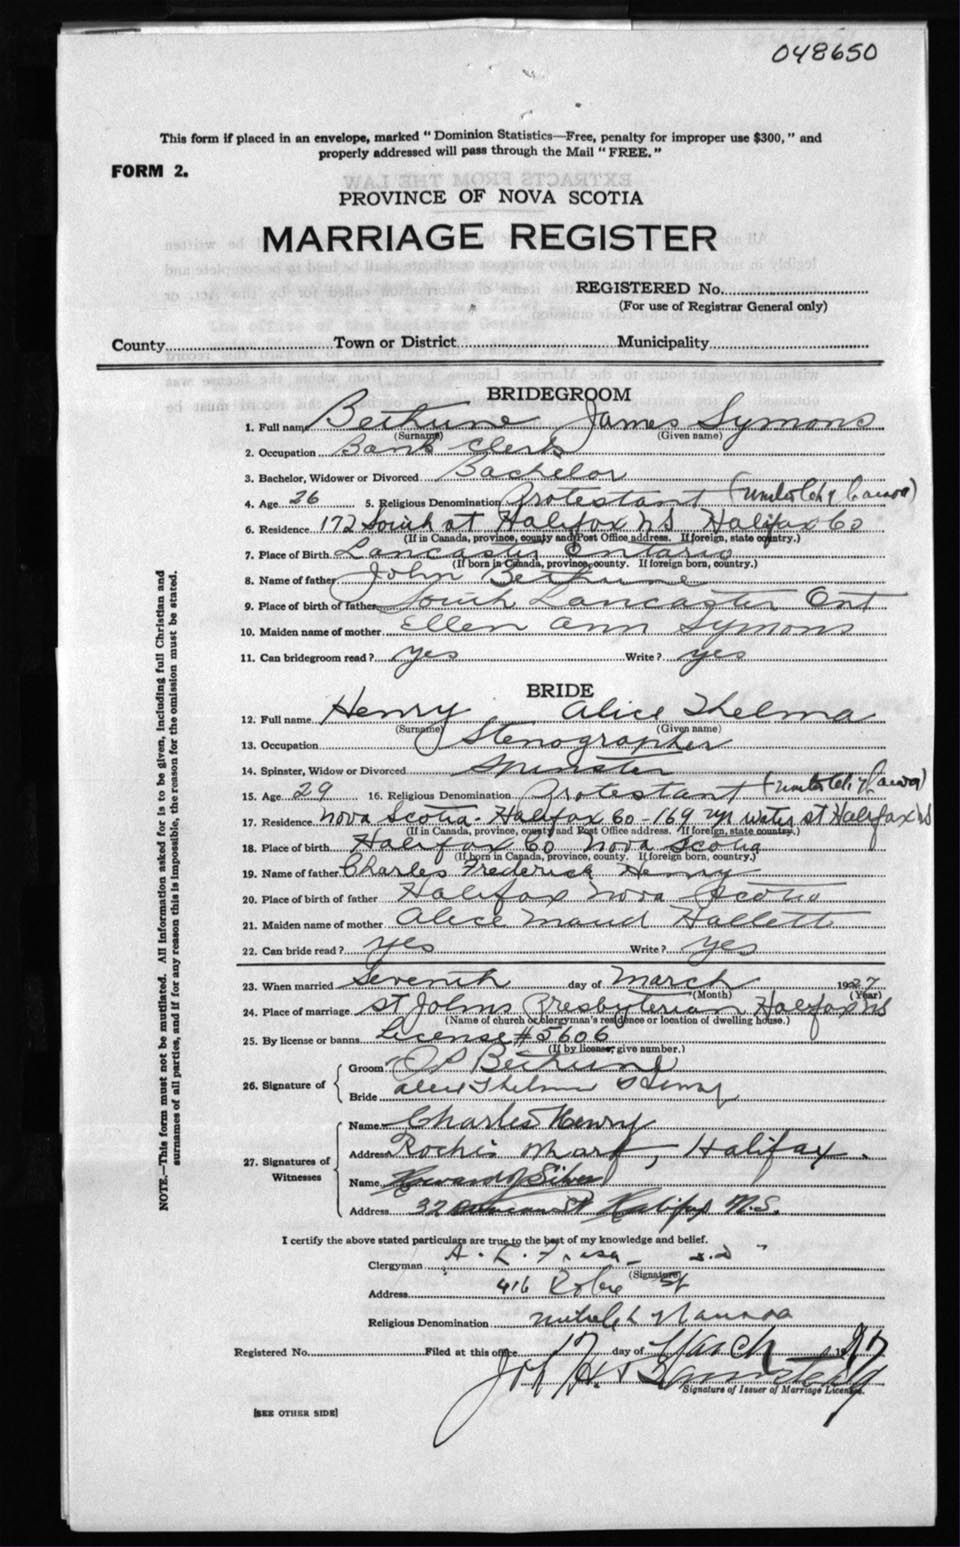 048650
This form if placed in an envelope, marked " Dominion Statistics—Free, penalty for improper use $300, " and
properly addressed will pass through the Mail " FREE. "
FORM 2.
PROVINCE OF NOVA SCOTIA
MARRIAGE REGISTER
REGISTERED No.
(For use of Registrar General only)
County Town or District Municipality
BRIDEGROOM
1. Full name Bethune James Symons
(Surname) (Given name)
2. Occupation Bank Clerk
3. Bachelor, Widower or Divorced Bachelor
4. Age 26 5. Religious Denomination Protestant (United Ch of Canada)
6. Residence 172 South st Halifax NS Halifax Co
(If in Canada, province, county and Post Office address. If foreign, state country.)
7. Place of Birth Lancaster Ontario
(If born in Canada, province, county. If foreign born, country.)
8. Name of father John Bethune
9. Place of birth of father South Lancaster Ont
10. Maiden name of mother Ellen Ann Symons
11. Can bridegroom read? yes Write? yes
BRIDE
12. Full name Henry Alice Thelma
(Surname) (Given name)
13. Occupation Stenographer
14. Spinster, Widow or Divorced Spinster
15. Age 29 16. Religious Denomination Protestant (United Ch of Canada)
17. Residence Nova Scotia - Halifax Co - 169 upr water st Halifax NS
(If in Canada, province, county and Post Office address. If foreign, state country.)
18. Place of birth Halifax Co Nova Scotia
(If born in Canada, province, county. If foreign born, country.)
19. Name of father Charles Frederick Henry
20. Place of birth of father Halifax Nova Scotia
21. Maiden name of mother Alice Maud Hallett
22. Can bride read? yes Write? yes
23. When married Seventh day of March 1927
(Month) (Year)
24. Place of marriage St Johns Presbyterian Halifax NS
(Name of church or clergyman's residence or location of dwelling house.)
25. By license or banns License # 5606
(If by license, give number.)
26. Signature of
Groom JS Bethune
Bride Alice Thelma Henry
27. Signatures of Witnesses
Name Charles Henry
Address Roche's Wharf, Halifax.
Name Howard Silver
Address 32 St Halifax N.S.
I certify the above stated particulars are true to the best of my knowledge and belief.
Clergyman A. L.
(Signature)
Address 416 Robie St
Religious Denomination United Ch of Canada
Registered No. Filed at this office 17 day of March 1927
Signature of Issuer of Marriage Licenses.
[SEE OTHER SIDE]
NOTE.—This form must not be mutilated. All information asked for is to be given, including full Christian and
surnames of all parties, and if for any reason this is impossible, the reason for the omission must be stated.